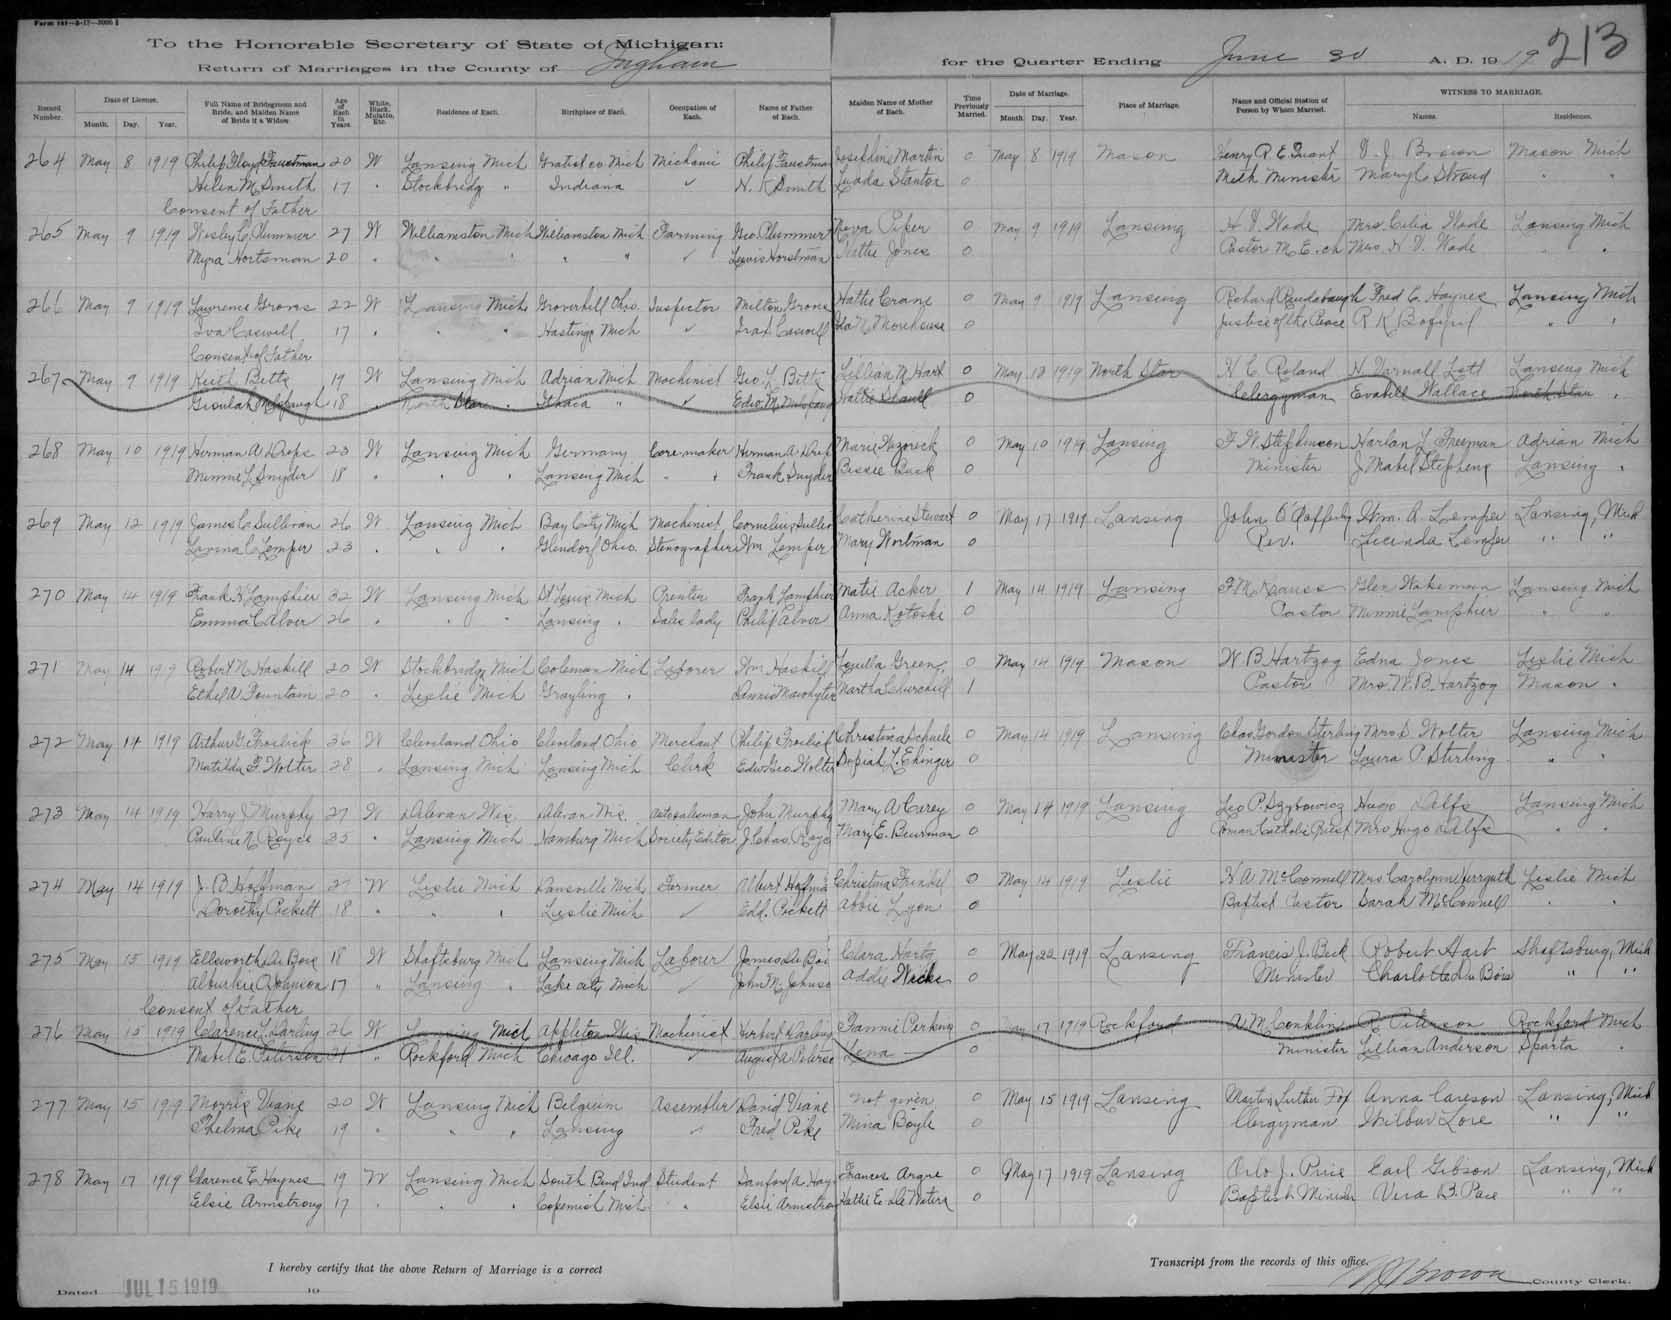 Form 141—3-17—3000
213
To the Honorable Secretary of State of Michigan:
Return of Marriages in the County of Ingham for the Quarter Ending June 30 A. D. 1919
Record Number. Date of License. Month. Day. Year. Full Name of Bridegroom and Bride, and Maiden Name of Bride if a Widow. Age of Each in Years. White, Black, Mulatto, Etc. Residence of Each. Birthplace of Each. Occupation of Each. Name of Father of Each. Maiden Name of Mother of Each. Time Previously Married. Date of Marriage. Month. Day. Year. Place of Marriage. Name and Official Station of Person by Whom Married. WITNESS TO MARRIAGE. Names. Residences.
264 May 8 1919 Philip Floyd Faustman 20 W Lansing Mich Gratiot co Mich Mechanic Philip Faustman Josephine Martin 0 May 8 1919 Mason Henry R E Quant V. J. Brown Mason Mich
Helen M Smith 17 " Stockbridg " Indiana ✓ N. K Smith Luada Stanton 0 Meth Minister Mary C Stroud " "
Consent of Father
265 May 9 1919 Wesley C. Plummer 27 W Williamston Mich Williamston Mich Farming Geo Plummer Piper 0 May 9 1919 Lansing H V Wade Mrs. Celia Wade Lansing Mich
Myra Hortsman 20 " " " " " ✓ Lewis Horstman Hattie Jones 0 Pastor M. E. ch Mrs. H V. Wade " "
266 May 9 1919 Lawrence Grove 22 W Lansing Mich Groverhill Ohio. Inspector Milton Grove Hattie Crane 0 May 9 1919 Lansing Richard Raudabaugh Fred C. Haynes Lansing Mich
Iva Caswell 17 " " " Hastings Mich ✓ Caswell Ida M. Morehouse 0 Justice of the Peace R K " "
Consent of Father
267 May 9 1919 Keith Betts 19 W Lansing Mich Adrian Mich Machinist Geo. L. Betts Lillian M Hart 0 May 18 1919 North Star H C Roland H. Yarnall Lott Lansing Mich
18 " North Star " Ithaca " ✓ Edw. M. Hattie 0 Clergyman Evabell Wallace North Star "
268 May 10 1919 Herman A Drefs 23 W Lansing Mich Germany Core maker Herman A Drefs Marie 0 May 10 1919 Lansing F. W. Stephenson Harlan L Freeman Adrian Mich
Minnie L. Snyder 18 " " " Lansing Mich " " Frank Snyder Bessie Buck 0 Minister J Mabel Stephens Lansing "
269 May 12 1919 James C Sullivan 26 W Lansing Mich Bay City Mich Machinist Cornelius Sullivan Catherine Stewart 0 May 17 1919 Lansing John O'Rafferty Wm. A. Lemper Lansing, Mich
Lavina C Lemper 23 " " " Glendorf Ohio. Stenographer Wm Lemper Mary Wortman 0 Rev. Lucinda Lemper " "
270 May 14 1919 Frank H Lamphier 32 W Lansing Mich St Louis Mich Printer Frank Lamphier Matie Acker 1 May 14 1919 Lansing F M Krauss Glen Wakeman Lansing Mich
Emma C Alver 26 " " " Lansing " Sales lady Philip Alver Anna Kotoske 0 Pastor Minnie Lamphier " "
271 May 14 1919 Robert N Haskill 20 W Stockbridge Mich Coleman Mich Laborer Wm Haskill Louilla Green 0 May 14 1919 Mason W B Hartzog Edna Jones Leslie Mich
Ethel A Fountain 20 " Leslie Mich Grayling " Martha Churchill 1 Pastor Mrs. W. B. Hartzog Mason "
272 May 14 1919 Arthur G. Froelick 36 W Cleveland Ohio Cleveland Ohio Merchant Philip Froelick Christina Schuele 0 May 14 1919 Lansing Chas Gordon Sterling Wolter Lansing Mich
Matilda F Wolter 28 " Lansing Mich Lansing Mich Clerk Edw. Geo. Wolter Sophia L. Ehinger 0 Minister Laura P. Sterling " "
273 May 14 1919 Harry J Murphy 27 W Delevan Wis. Delevan Wis. autosalesman John Murphy Mary A Carey 0 May 14 1919 Lansing Leo P. Hugo Delfs Lansing Mich
Pauline N Royce 35 " Lansing Mich Hamburg Mich Society Editor J. Chas. Royce Mary E. Beurman 0 Roman Catholic Priest Mrs Hugo Delfs " "
274 May 14 1919 J. B. Hoffman 27 W Leslie Mich Dansville Mich Farmer Albert Hoffman Christina Frinkel 0 May 14 1919 Leslie H A McConnell Mrs Carolynne Leslie Mich
Dorothy Pickett 18 " " " Leslie Mich ✓ Edd. Pickett Abbie Lyon 0 Baptist Pastor Sarah McConnell " "
275 May 15 1919 Ellsworth DuBois 18 W Shaftsburg Mich Lansing Mich Laborer James DuBois Clara Hartz 0 May 22 1919 Lansing Francis J. Beck Robert Hart Shaftsburg, Mich
Johnson 17 " Lansing " Lake city Mich ✓ John N. Johnson Addie Weeks 0 Minister Charlotte DuBois " "
Consent of Father
276 May 15 1919 Clarence L. Darling 26 W Lansing Mich Appleton Wis Machinist Herbert Darling Fannie Perkins 0 May 17 1919 Rockford A. M. Conklin R. Peterson Rockford Mich
Mabel E. Peterson 21 " Rockford Mich Chicago Ill. ✓ August A Peterson Lena — 0 Minister Lillian Anderson Sparta "
277 May 15 1919 Morris Viane 20 W Lansing Mich Belgium Assembler David Viane not given 0 May 15 1919 Lansing Martin Luther Fox Anna Careson Lansing, Mich
Thelma Pike 19 " " " Lansing ✓ Fred Pike Mina Boyle 0 Clergyman Wilbur Lore " "
278 May 17 1919 Clarence E Haynes 19 W Lansing Mich South Bend Ind Student Sanford A. Hay Frances Argue 0 May 17 1919 Lansing Orlo J. Price Earl Gibson Lansing, Mich
Elsie Armstrong 17 " " " Copemish Mich " Elsie Armstrong Hattie E De Waters 0 Baptist Minister Vera B. Pace " "
I hereby certify that the above Return of Marriage is a correct Transcript from the records of this office.
Dated JUL 15 1919 19 Brown County Clerk.